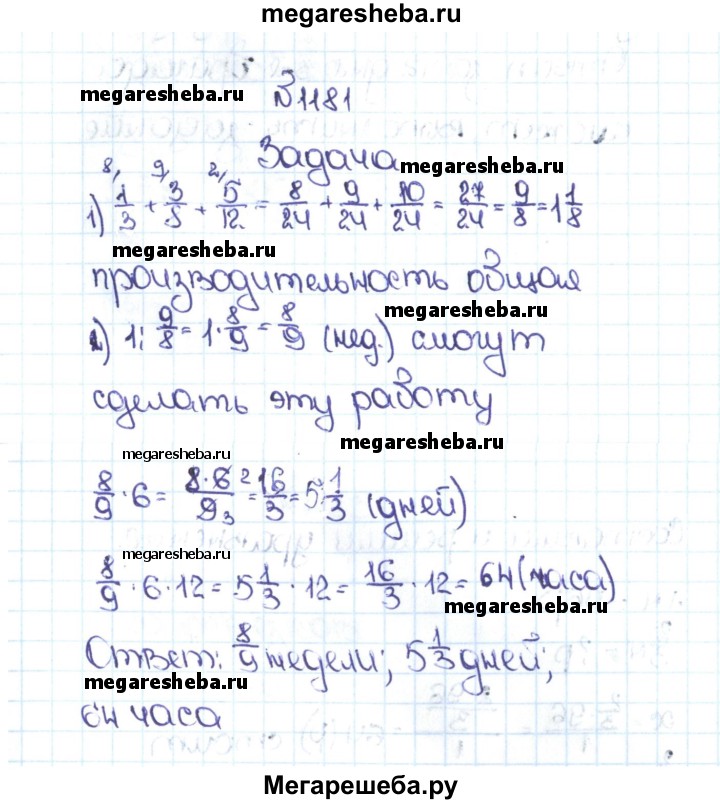 megaresheba.ru
megaresheba.ru №1181
Задача megaresheba.ru
8, 9, 2,
1) 1/3 + 3/8 + 5/12 = 8/24 + 9/24 + 10/24 = 27/24 = 9/8 = 1 1/8
megaresheba.ru
производительность общая
megaresheba.ru
2) 1: 9/8 = 1 · 8/9 = 8/9 (нед.) смогут
сделать эту работу
megaresheba.ru
megaresheba.ru
8/9 · 6 = 8·6 2/9 3 = 16/3 = 5 1/3 (дней)
megaresheba.ru
8/9 · 6 · 12 = 5 1/3 · 12 = 16/3 · 12 = 64 (часа)
megaresheba.ru
Ответ: 8/9 недели; 5 1/3 дней;
megaresheba.ru
64 часа
Мегарешеба.ру